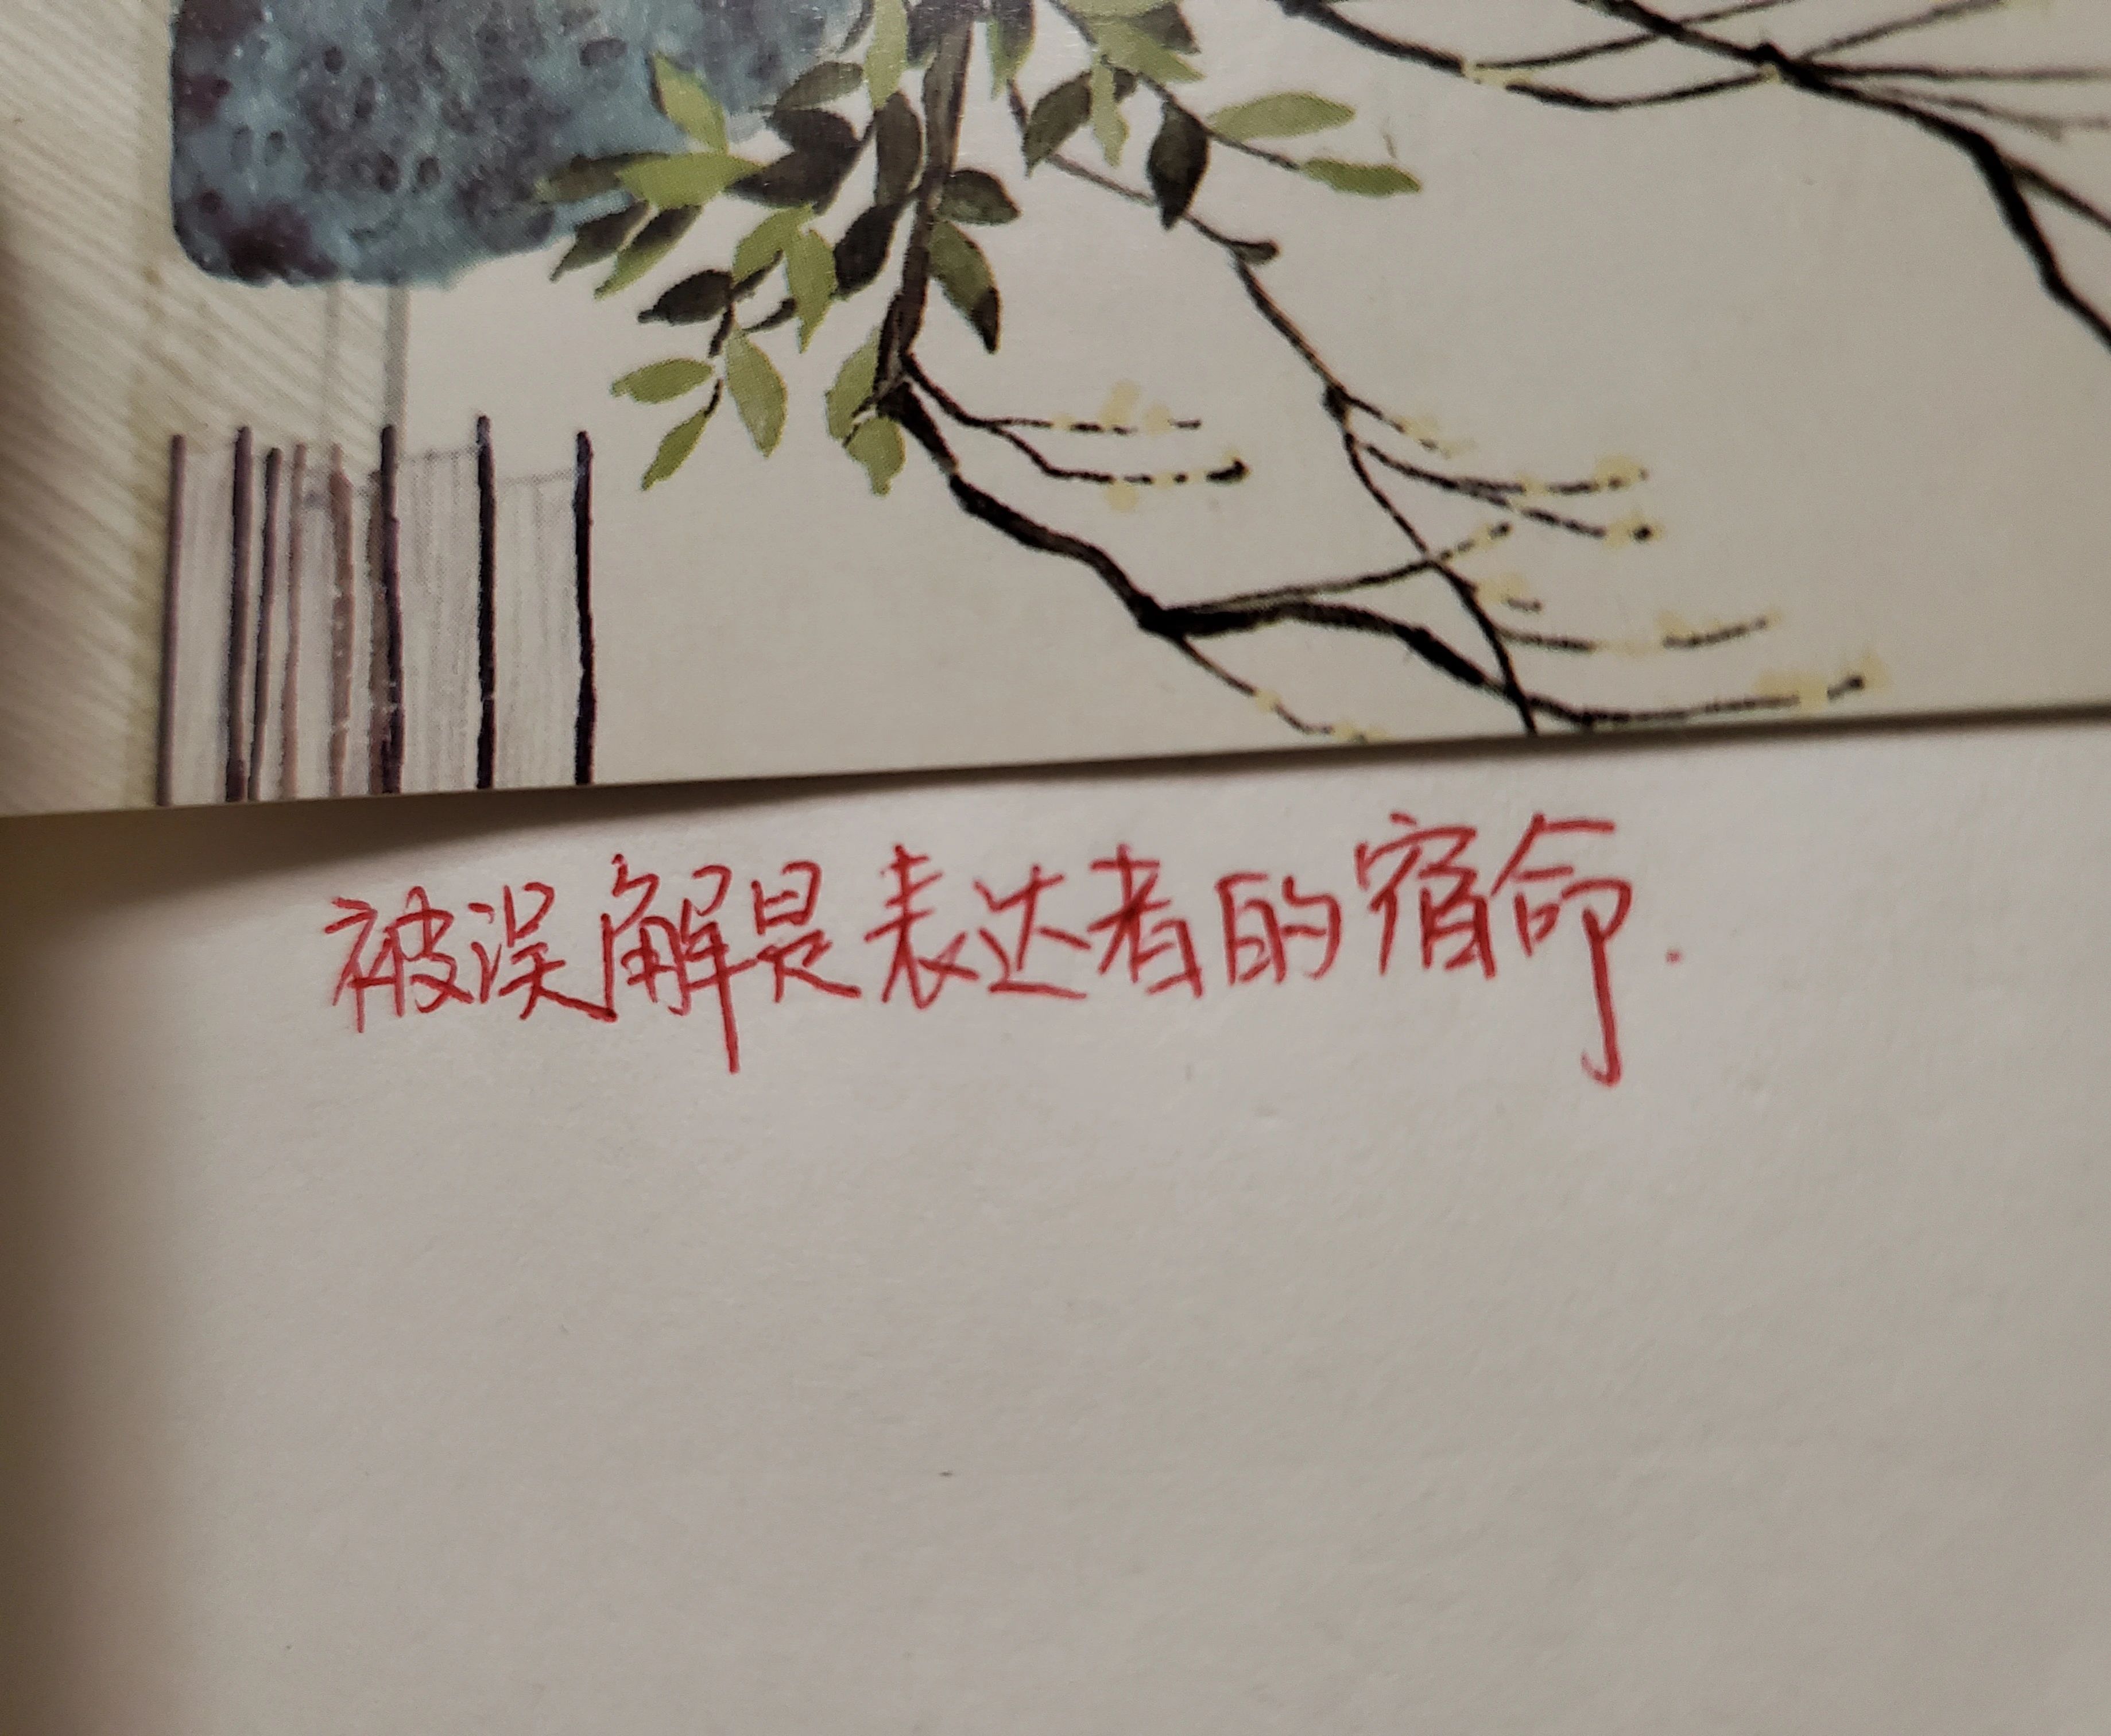 被误解是表达者的宿命.